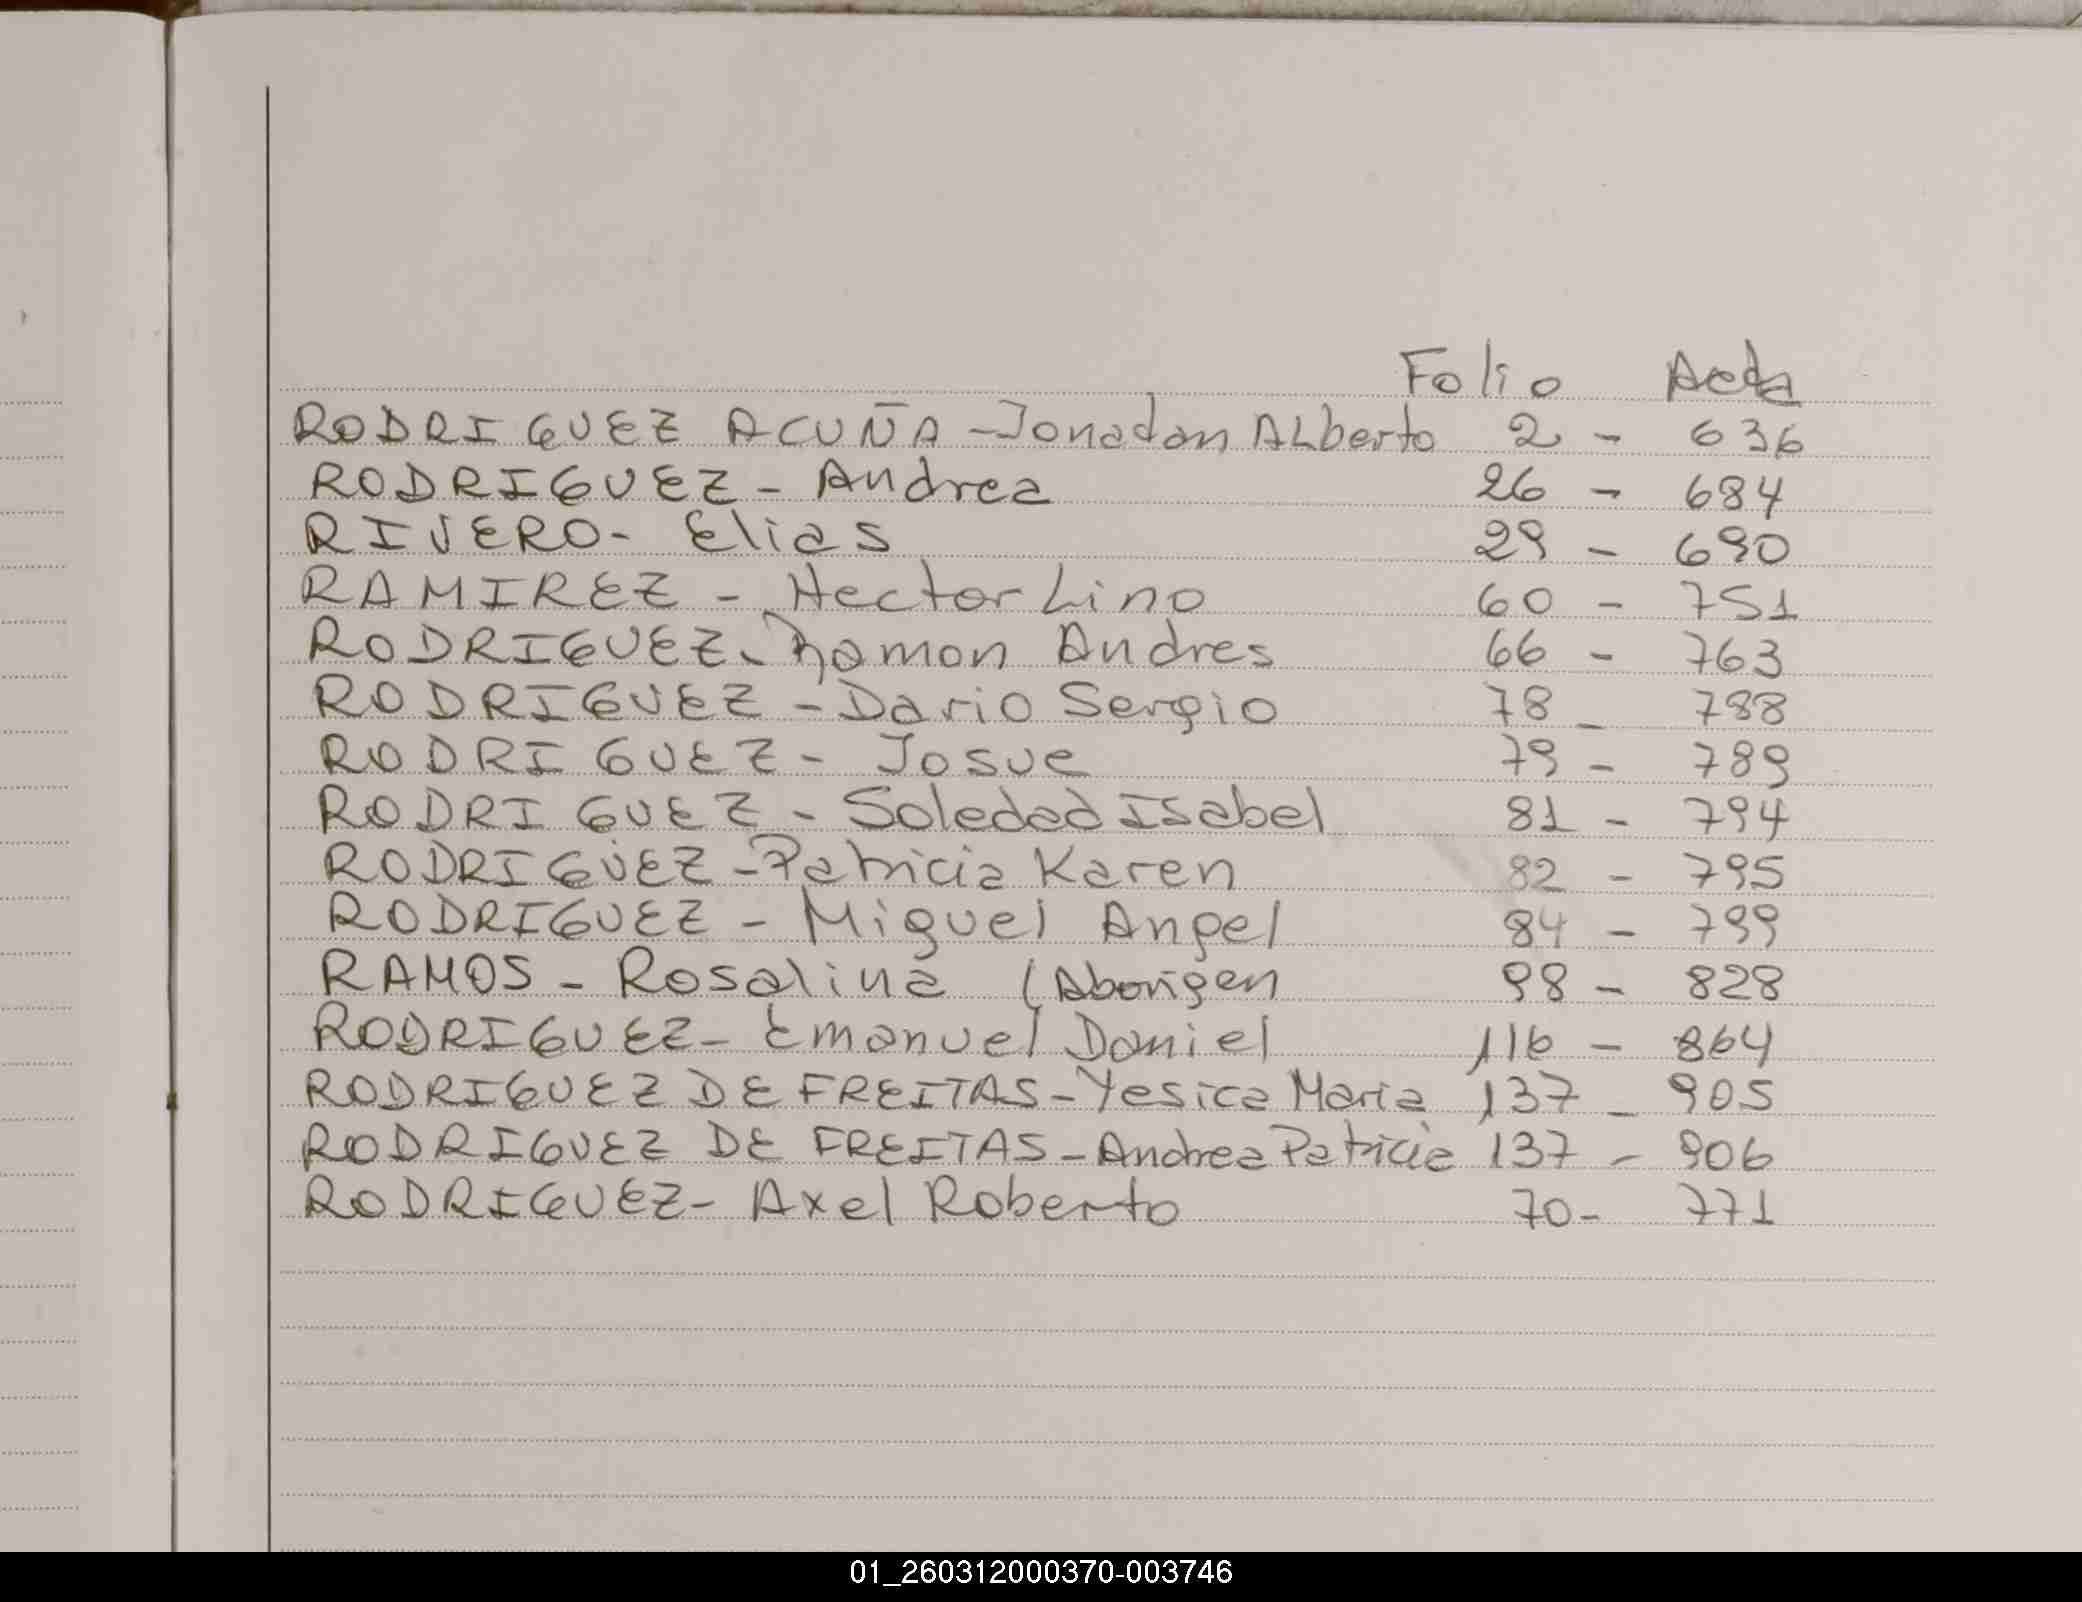 Folio - Acta
RODRIGUEZ ACUÑA - Jonadan ALberto 2 - 636
RODRIGUEZ - Andrea 26 - 684
RIVERO - Elias 29 - 690
RAMIREZ - Hector Lino 60 - 751
RODRIGUEZ - Ramon Andres 66 - 763
RODRIGUEZ - Dario Sergio 78 - 788
RODRIGUEZ - Josue 79 - 789
RODRIGUEZ - Soledad Isabel 81 - 794
RODRIGUEZ - Patricia Karen 82 - 795
RODRIGUEZ - Miguel Angel 84 - 799
RAMOS - Rosalina (Aborigen 98 - 828
RODRIGUEZ - Emanuel Daniel 116 - 864
RODRIGUEZ DE FREITAS - Yesica Maria 137 - 905
RODRIGUEZ DE FREITAS - Andrea Patricia 137 - 906
RODRIGUEZ - Axel Roberto 70 - 771
01_260312000370-003746